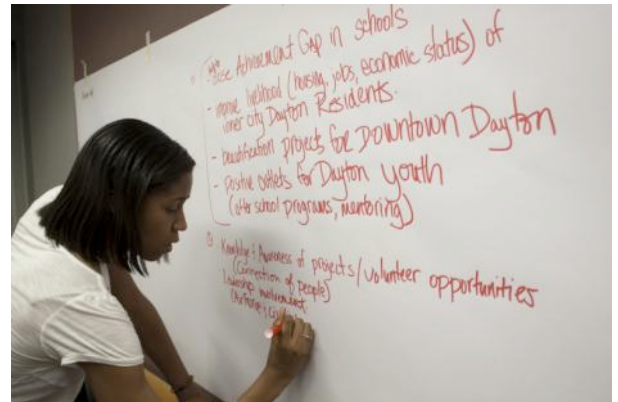 close Achievement Gap in schools
- improve livelihood (housing, jobs, economic status) of
inner city Dayton Residents.
- beautification projects for Downtown Dayton
- Positive outlets for Dayton youth
(after school programs, mentoring)
Knowledge & Awareness of projects/volunteer opportunities
(Connection of people)
Leadership involvement